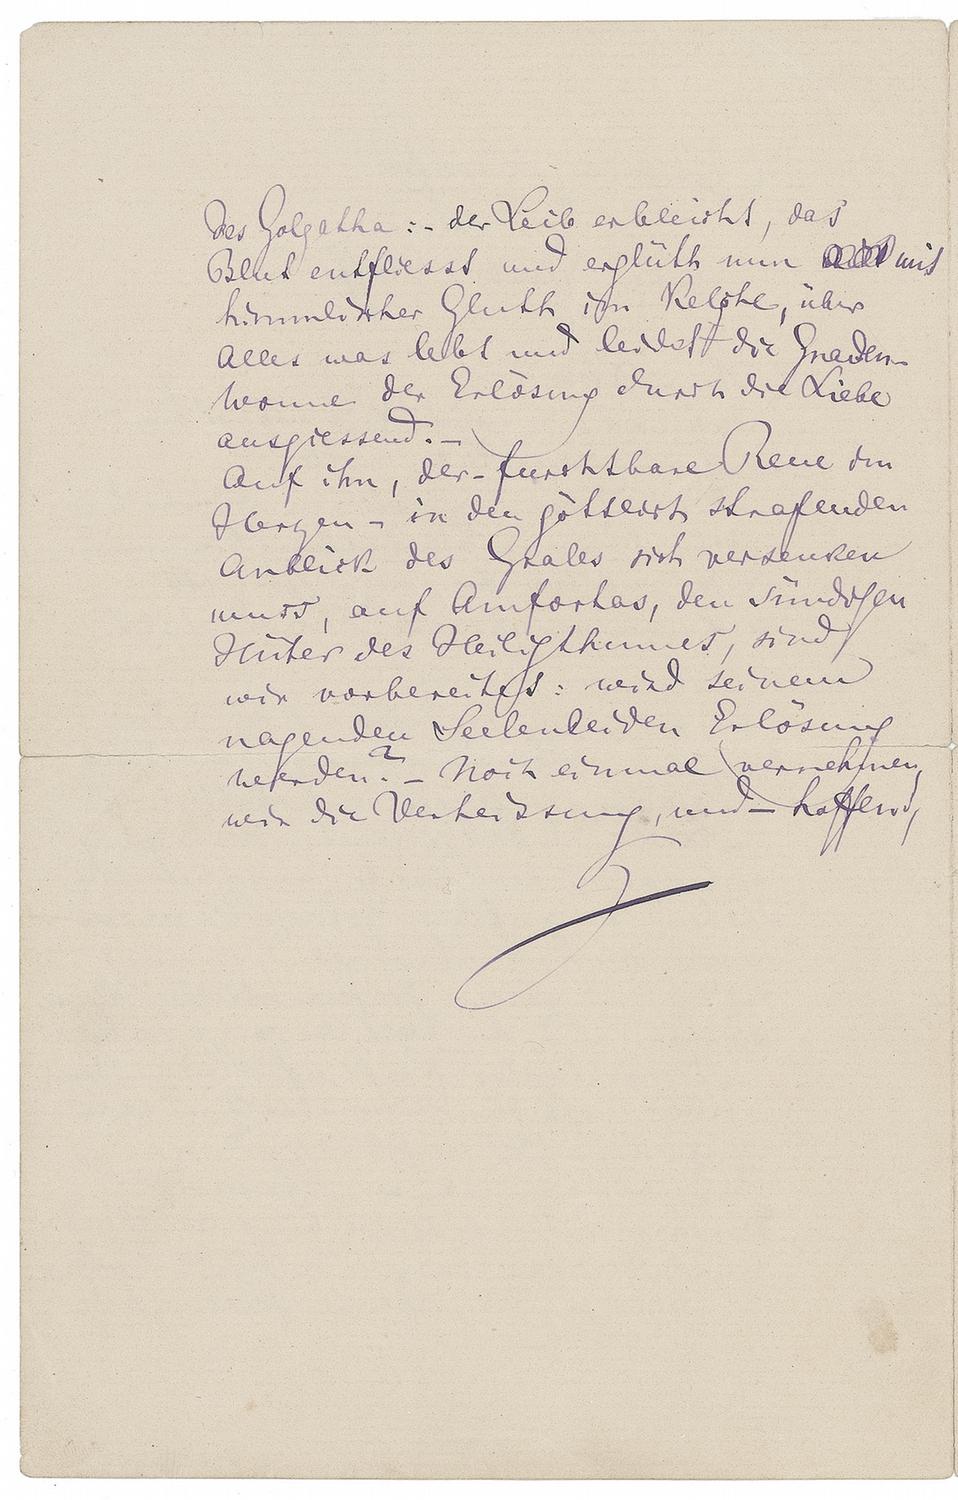 des Golgatha: - der Leib erbleicht, das
Blut entfliesst und erglüth nun mit
himmlischer Gluth im Kelche, über
Alles was lebt und leidet die Gnaden-
wonne der Erlösung durch die Liebe
ausgiessend. -
Auf ihn, der - furchtbare Reue im
Herzen - in den göttlich strafenden
Anblick des Grales sich versenken
muss, auf Amfortas, den sündigen
Hüter des Heiligthumes, sind
wir vorbereitet: wird seinem
nagenden Seelenleiden Erlösung
werden? - Noch einmal vernehmen
wir die Verheissung, und - hoffen!